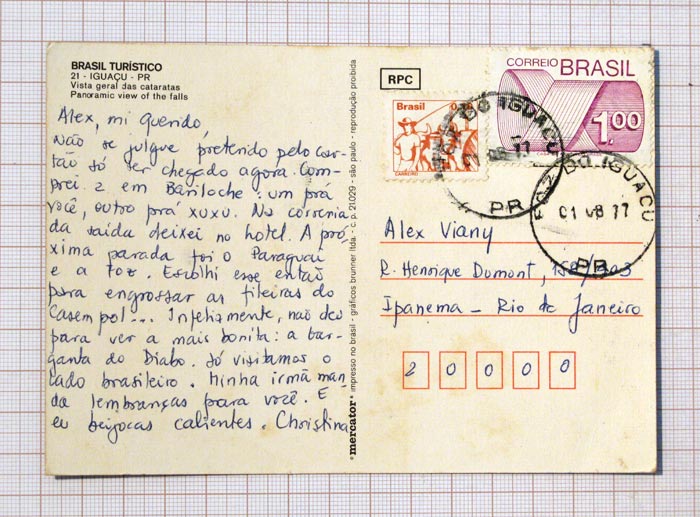 BRASIL TURÍSTICO
21 - IGUAÇU - PR
Vista geral das cataratas
Panoramic view of the falls
Alex, mi querido,
Não se julgue preterido pelo car-
tão só ter chegado agora. Com-
prei 2 em Bariloche: um prá
você, outro prá xuxu. Na correria
da saída deixei no hotel. A pró-
xima parada foi o Paraguai
e a Foz. Escolhi esse então
para engrossar as fileiras do
Casempol... Infelizmente, não deu
para ver a mais bonita: a Gar-
ganta do Diabo. Só visitamos o
lado brasileiro. Minha irmã man-
da lembranças para você. E
eu beijocas calientes. Christina
mercator® impresso no brasil - gráficos brunner ltda. - c. p. 21029 - são paulo - reprodução proibida
RPC
Brasil
CARREIRO
CORREIO BRASIL
1,00
DO IGUAÇU
77
PR
FOZ DO IGUAÇU
01 77
PR
Alex Viany
R. Henrique Dumont,
Ipanema - Rio de Janeiro
2 0 0 0 0